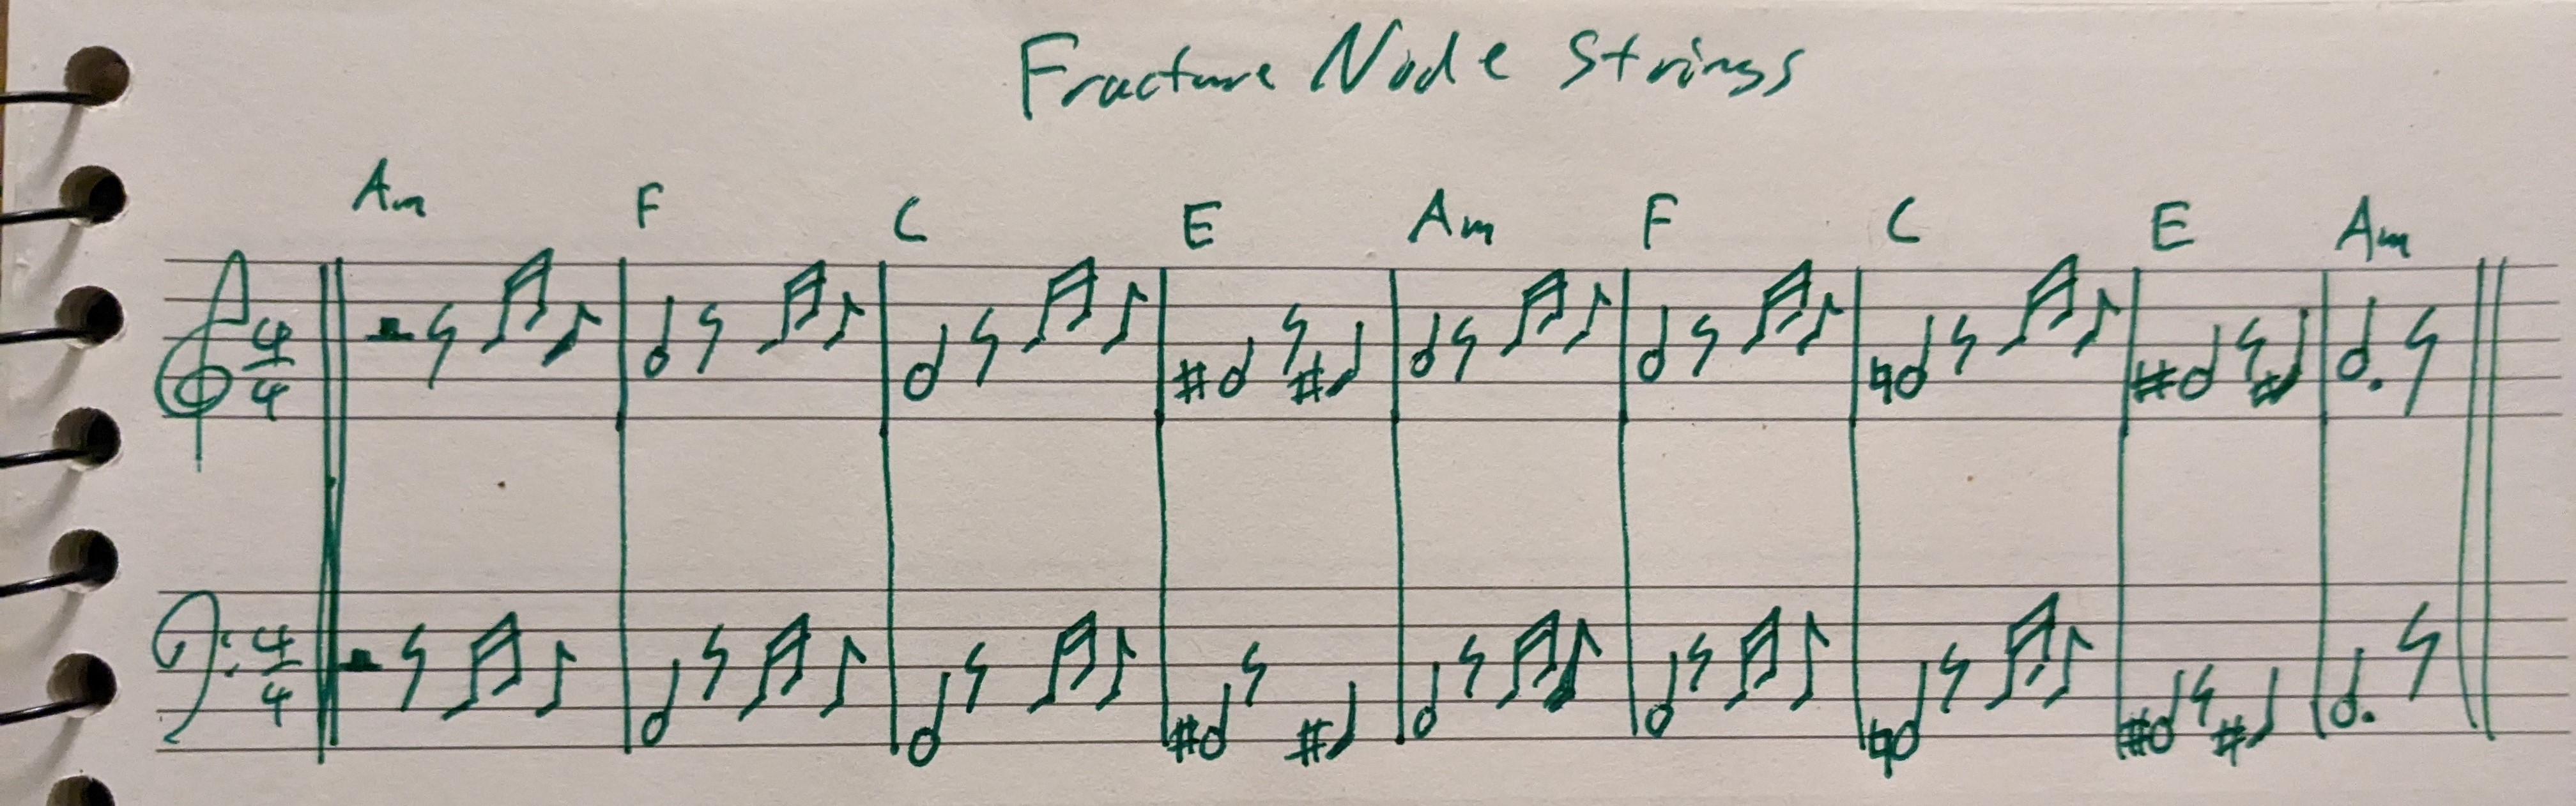 Fracture Node Strings
Am F C E Am F C E Am
4/4
4/4